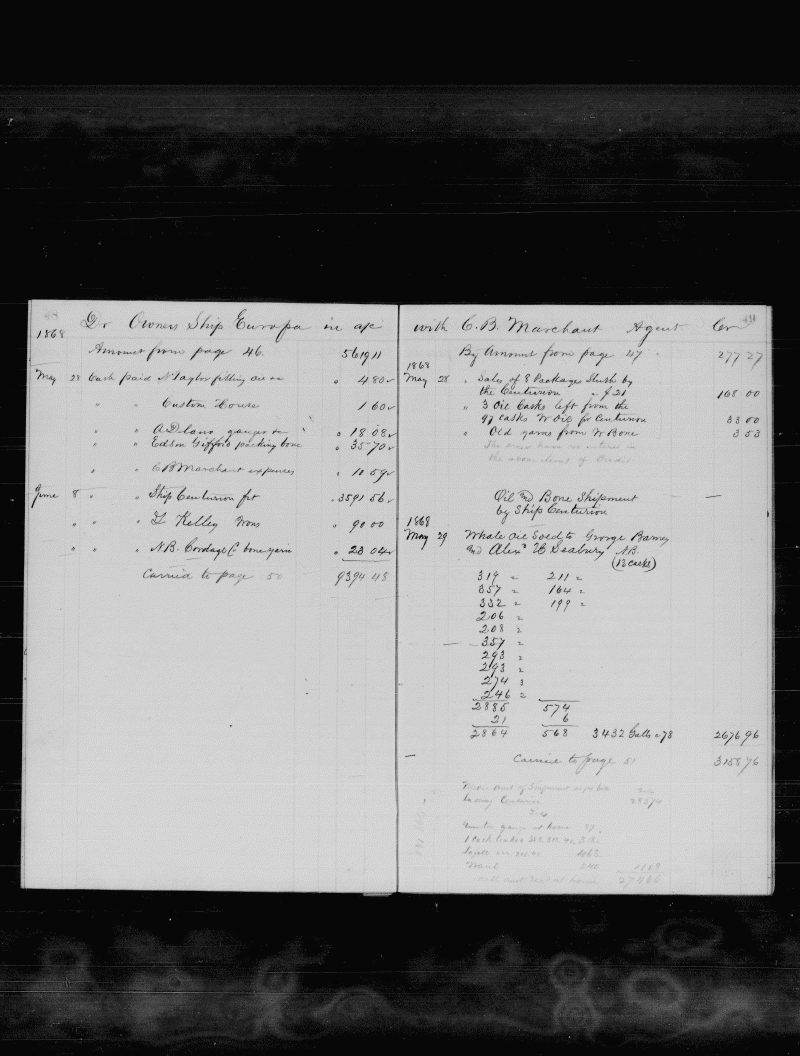 48
1868
Dr Owners Ship Europa in a/c
Amount from page 46. 5619 11
May 28 Cash paid N Taylor filling oil &c " 4 80
" " Custom House 1 60
" " A Delano gauger &c " 18 08
" " Edson Gifford packing bone " 35 70
" " C B Marchant expenses " 10 59
June 8 " " Ship Centurion frt " 3591 56
" " " Kelley Irons " 90 00
" " " N.B. Cordage Co bone yarn " 23 04
Carried to page 50 9394 48
49
with C. B. Marchant Agent Cr
By Amount from page 47 277 27
1868
May 28 " Sales of 8 Packages Slush by
the Centurion " $21 168 00
" 3 Oil Casks left from the
97 casks W Oil pr Centurion 33 00
" Old yarns from W Bone 3 53
Oil and Bone Shipment
by Ship Centurion
1868
May 29 Whale Oil Sold to George Barney
and Alexr H Seabury N.B.
(13 casks)
319 " 211 "
357 " 164 "
332 " 199 "
206 "
208 "
357 "
293 "
293 "
274 "
246 "
2885 574
21 6
2864 568 3432 Galls @ 78 2676 96
Carried to page 51 3158 76